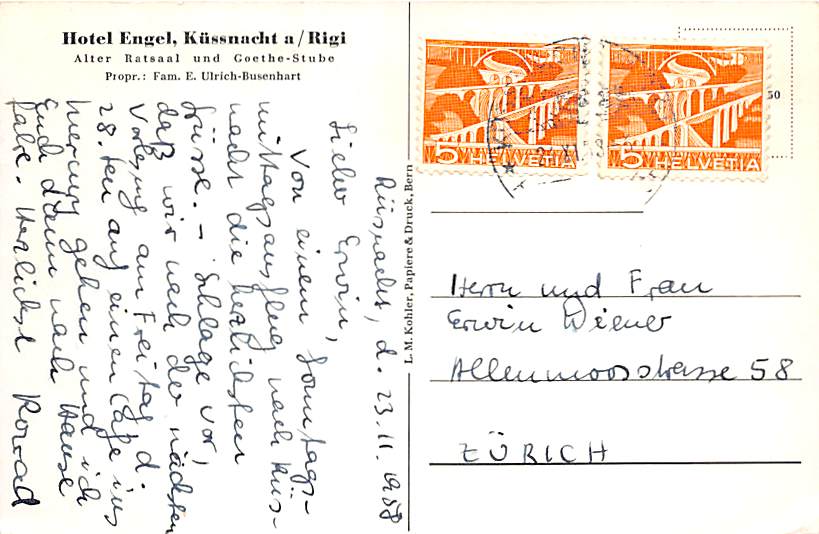 Hotel Engel, Küssnacht a/Rigi
Alter Ratsaal und Goethe-Stube
Propr.: Fam. E. Ulrich-Busenhart
Küssnacht, d. 23.11.1958
Lieber Erwin,
Von einem Sonntags-
mittagsausflug nach Küs-
nacht die herzlichsten
Grüsse. - Schlage vor,
daß wir nach der nächsten
Vorlesung am Freitag d.
28. ten auf einen Café ins
gehen und ich
Euch dann nach Hause
fahre. Herzlichst Konrad
L. M. Kohler, Papiere & Druck, Bern
5 HELVETIA
5 HELVETIA
50
Herrn und Frau
Erwin Wiener
Allenmoosstrasse 58
ZÜRICH